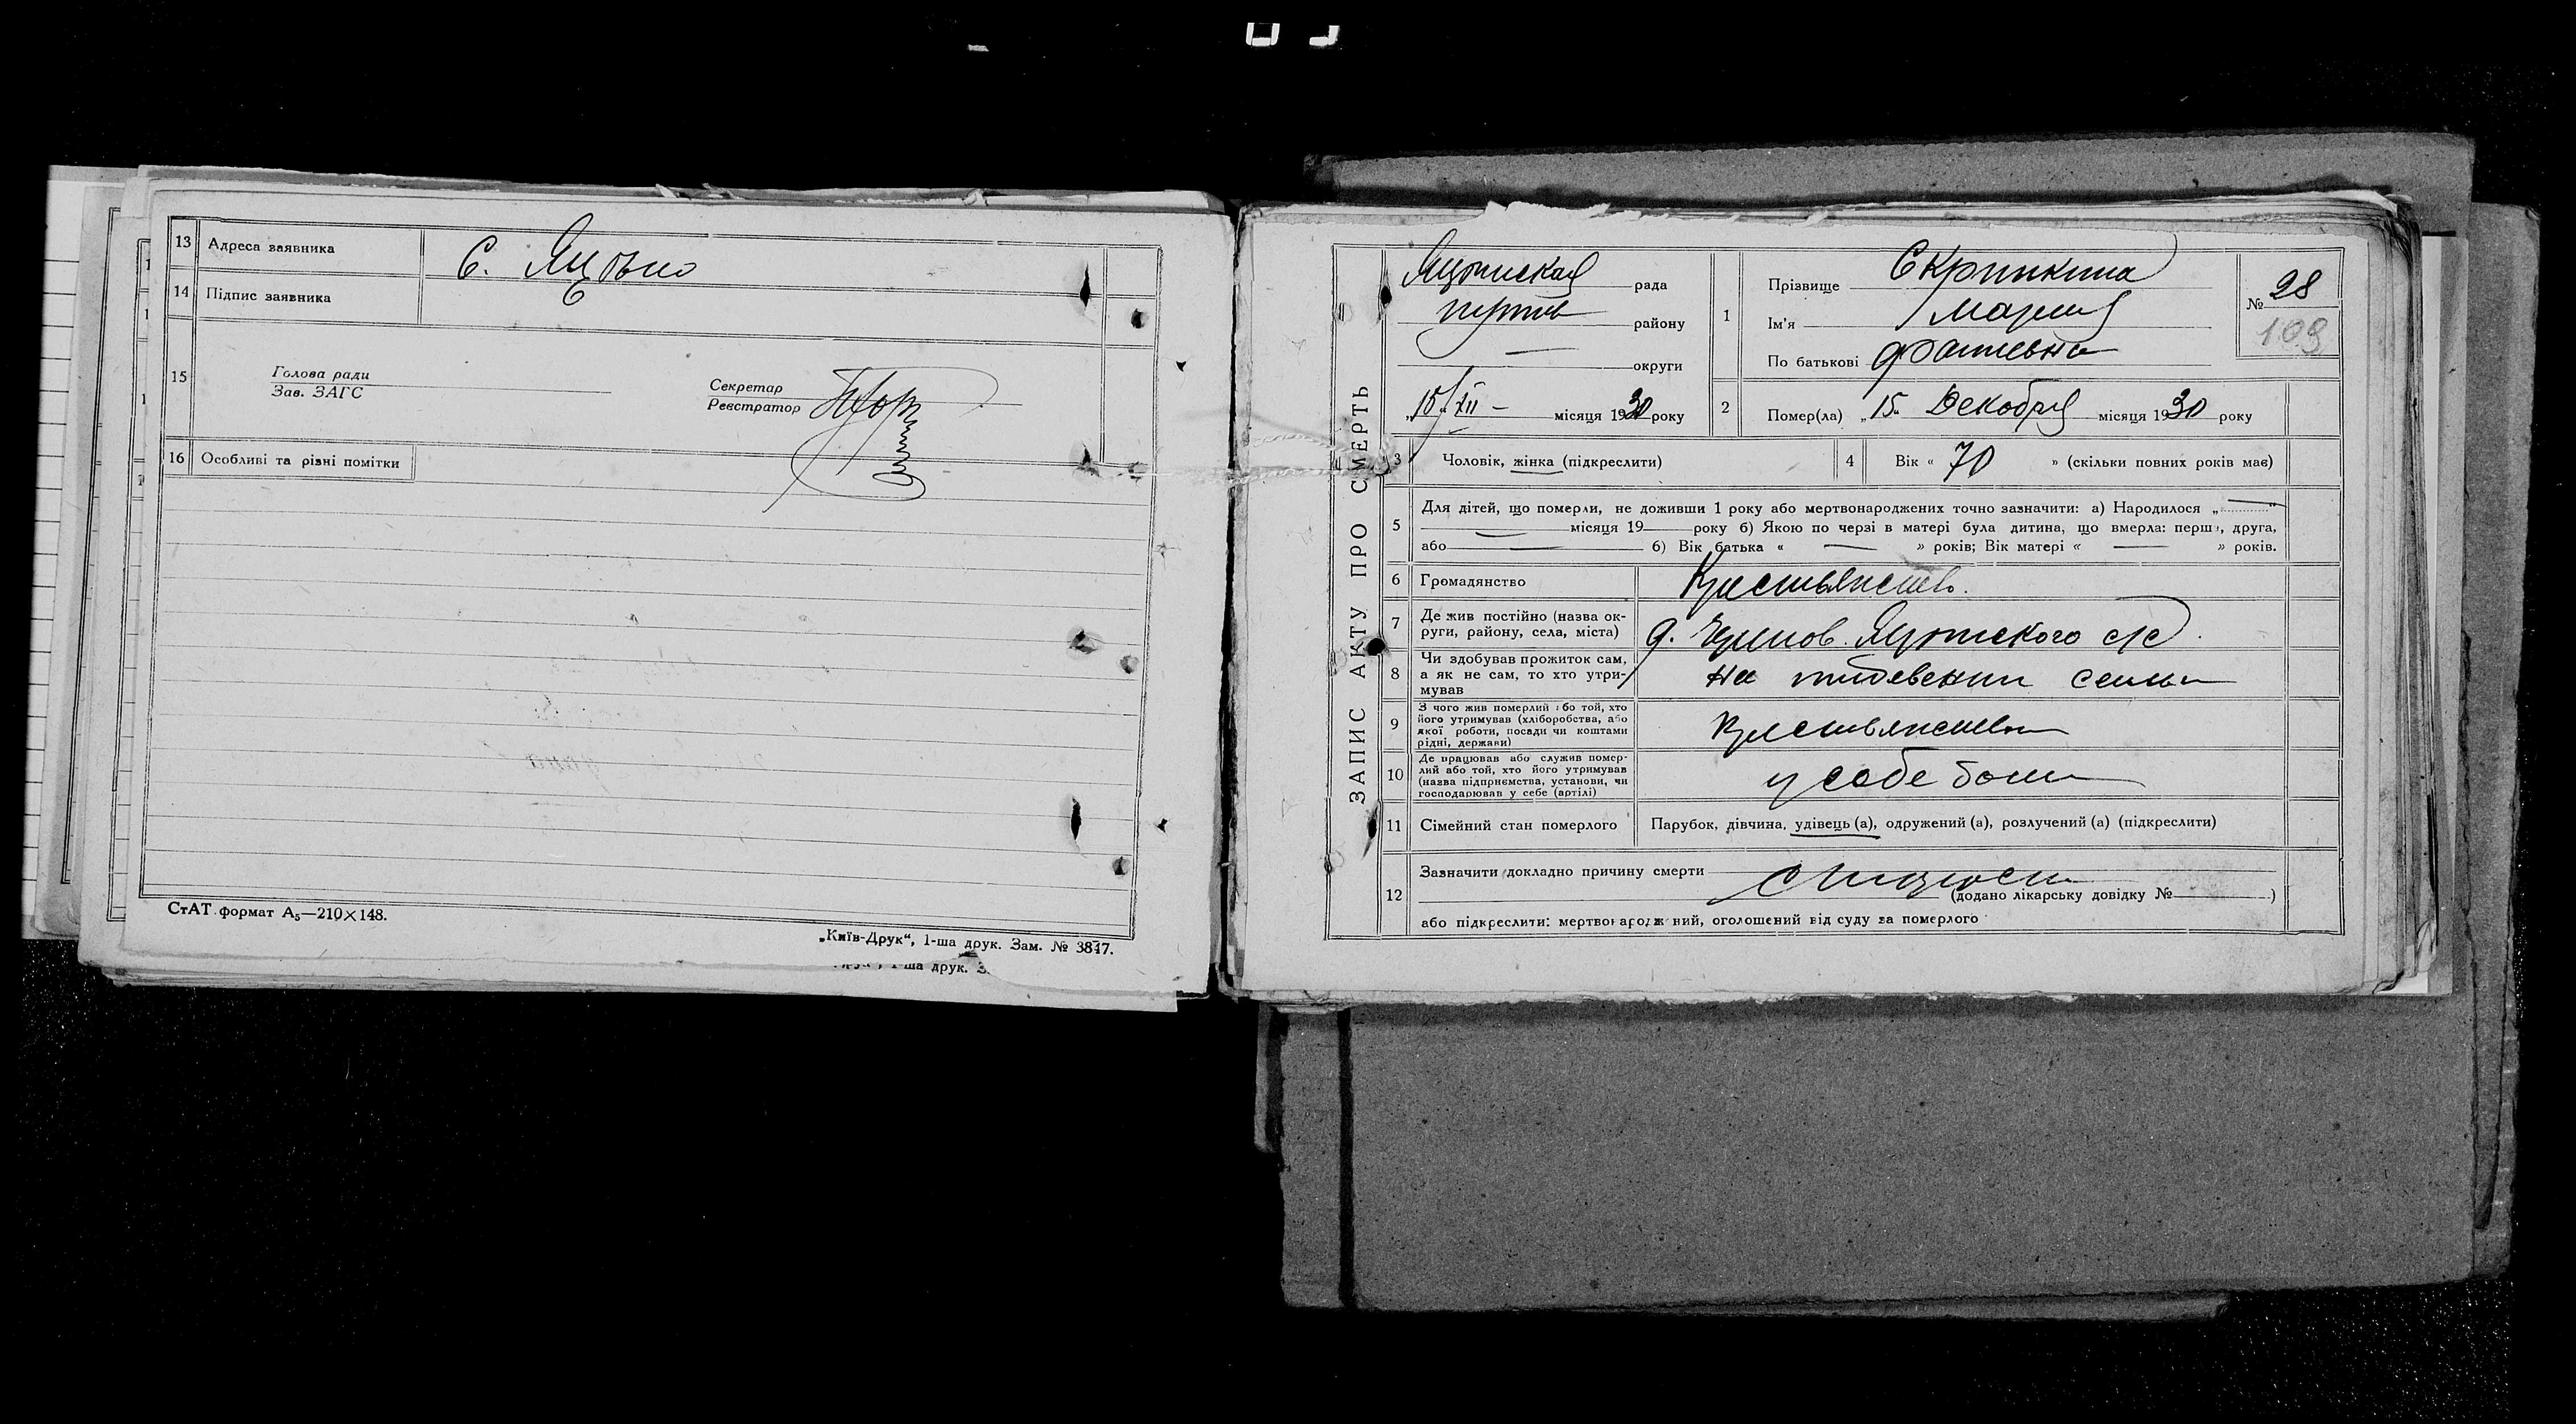 13 Адреса заявника С. Яцыно
14 Підпис заявника
15 Голова ради
Зав. ЗАГС
Секретар
Реєстратор
16 Особливі та різні помітки
СтАТ формат А₅—210×148.
„Київ-Друк“, 1-ша друк. Зам. № 3847.
1-ша друк. З
ЗАПИС АКТУ ПРО СМЕРТЬ
Яцынская рада
округи
15/XII – місяця 1930 року
1 Прізвище Скрипкина
Ім'я Мария
По батькові
№ 28
109
2 Помер(ла) „15„ Декабря місяця 1930 року
3 Чоловік, жінка (підкреслити)
4 Вік « 70 » (скільки повних років має)
5 Для дітей, що померли, не доживши 1 року або мертвонароджених точно зазначити: а) Народилося „ “
місяця 19 — року б) Якою по черзі в матері була дитина, що вмерла: перша, друга,
або — б) Вік батька « — » років; Вік матері « — » років.
6 Громадянство Крестьянство.
7 Де жив постійно (назва ок-
руги, району, села, міста) д. Яцынского с/с.
8 Чи здобував прожиток сам,
а як не сам, то хто утри-
мував на семьи
9 З чого жив померлий або той, хто
його утримував (хліборобства, або
якої роботи, посади чи коштами
рідні, держави) Крестьянства
10 Де працював або служив помер-
лий або той, хто його утримував
(назва підприємства, установи, чи
господарював у себе (артілі) у себе
11 Сімейний стан померлого Парубок, дівчина, удівець (а), одружений (а), розлучений (а) (підкреслити)
12 Зазначити докладно причину смерти
(додано лікарську довідку № )
або підкреслити: мертвонароджений, оголошений від суду за померлого